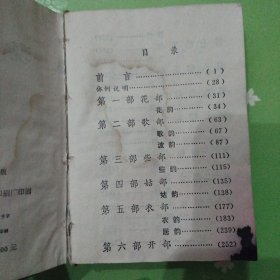 目录
前言……………(1)
体例说明……………(28)
第一部花部……………(31)
花韵……………(34)
第二部歌部……………(63)
歌韵……………(67)
波韵……………(87)
第三部些部……………(111)
些韵……………(115)
第四部姑部……………(135)
姑韵……………(138)
第五部衣部……………(177)
衣韵……………(183)
居韵……………(239)
第六部开部……………(252)